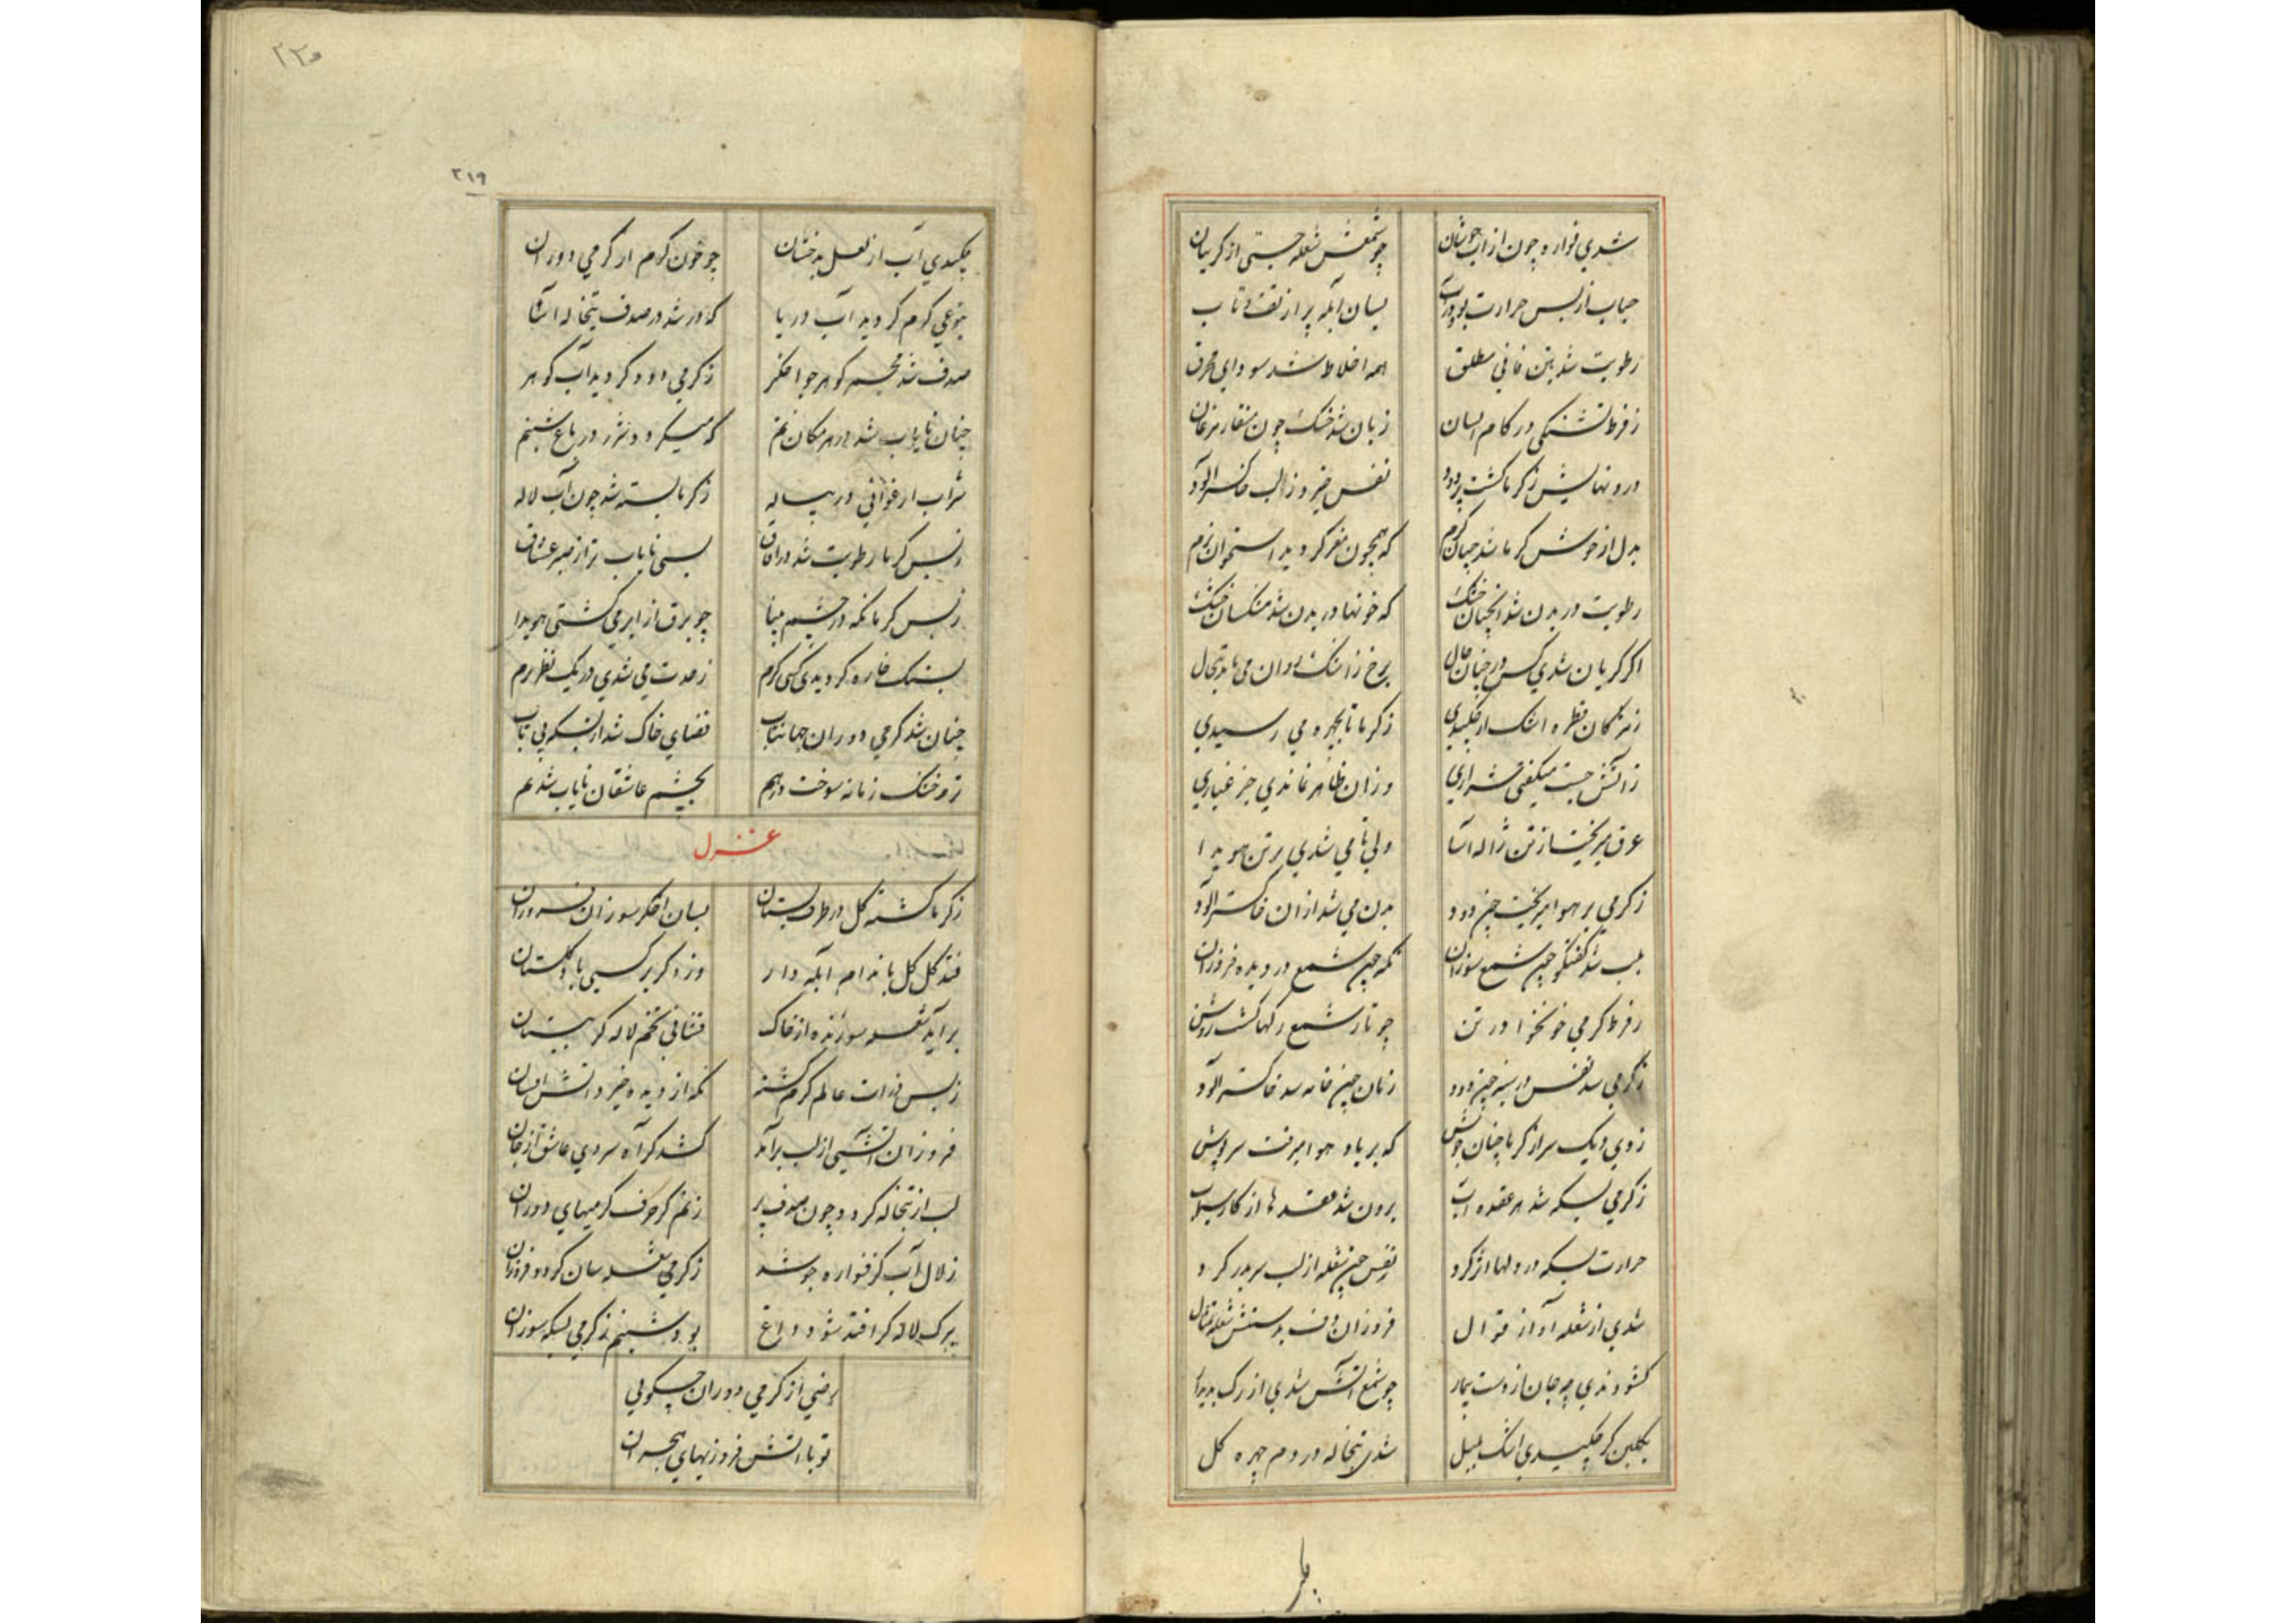 شدي فواره چون از آب جوشان چو شمعش شعله جستي از كريبان
حباب از بس حرارت بود در آب بسان آبله پر از تف و تاب
رطوبت شد بتن فاني مطلق همه اخلاط شد سوداي محرق
ز فرط تشنكي در كام انسان زبان شد خشك چون منقار مرغان
درونهابش ز كرما كشت پر دود نفس خيزد ز لب خاكستر آلود
بدل از جوشش كرما شد چنان كرم كه همچون مغز كرديد استخوان نرم
رطوبت در بدن شد آنچنان خشك كه خونها در بدن شد مشكسان خشك
اكر كريان شدي كس در چنان حال برخ ز اشك روان مي ماند تبخال
ز مژكان قطره اشك ار چكيدي ز كرما تا بچهره مي رسيدي
ز آتش جست ميكفتي شراري وزان ظاهر نماندي جز غباري
عرق ميريخت از تن ژاله آسا ولي تا مي شدي بر تن هويدا
ز كرمي بر هوا ميريخت چون دود بدن مي شد از آن خاكستر آلود
بلب شد كفتكو چون شمع سوزان نكه چون شمع در ديده فروزان
ز فرط كرمي خونخوا در تن چو تار شمع ركها كشت روشن
ز كرمي شد نفس در سينه چون دود زبان چون خامه شد خاكستر آلود
ز دي ديك سر از كرما چنان جوش كه بر باد هوا ميرفت سرپوش
ز كرمي بسكه شد هر عقده آب برون شد عقدها از كار سيماب
حرارت بسكه در دلها اثر كرد نفس چون شعله از لب سر بدر كرد
شدي از شعله آواز قوال فروزان دف بدستش شعله تمثال
كشودندي چو جان از دست بيمار چو شمع آتش شدي از رك پديدار
بكلبن كر چكيدي اشك بلبل شدي تبخاله در دم چهره كل
٢١٩
٢٢٠
چكيدي آب از لعل بدخشان چو خون كرم از كرمي دوران
بنوعي كرم كرديد آب دريا كه در شد در صدف تبخاله آسا
صدف شد مجمر كوهر چو اخكر ز كرمي دود كرديد آب كوهر
چنان ناياب شد در هر مكان نم كه ميكردد شرر در باغ شبنم
شراب ارغواني در پياله ز كرما بسته شد چون آب لاله
ز بس كرما رطوبت شد در آفاق بسي ناياب تر از صبر عشاق
ز بس كرما نكه در چشم بينا چو برق از ابر مي كشتي هويدا
بسنك خاره كرديدي كسي كرم ز حدت مي شدي در يك نظر نرم
چنان شد كرمي دوران جهانتاب فضاي خاك شد از بسكه بي تاب
تر و خشك زمانه سوخت در هم بچشم عاشقان ناياب شد نم
غزل
ز كرما كشته كل در طرف بستان بسان اخكر سوزان فروزان
فتد كل كل باندام آبله دار وزد كر بر كسي باد كلستان
برآيد شعله سوزنده از خاك فشاني تخم لاله كر ببستان
ز بس ذرات عالم كرم كشته نكه از ديده خيزد آتش افشان
فروزان آتشي از لب برآيد كشد كر آه سردي عاشق از جان
لب از تبخاله كردد چون صدف پر زنم كر حرف كرميهاي دوران
زلال آب كز فواره جوشد ز كرمي شعله سان كردد فروزان
ببرك لاله كر افتد شود داغ بود شبنم ز كرمي بسكه سوزان
رضي از كرمي دوران چكويي
تو با آتش فروزيهاي هجران